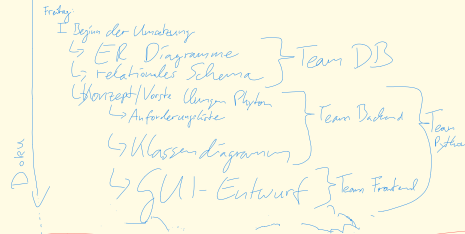 Freitag:
I Beginn der Umsetzung
↳ ER Diagramme
↳ relationales Schema
} Team DB
↳ Konzept/Vorstellungen Phyton
↳ Anforderungsliste
} Team Backend
↳ Klassendiagramm
} Team Python
↳ GUI-Entwurf } Team Frontend
Doku
...